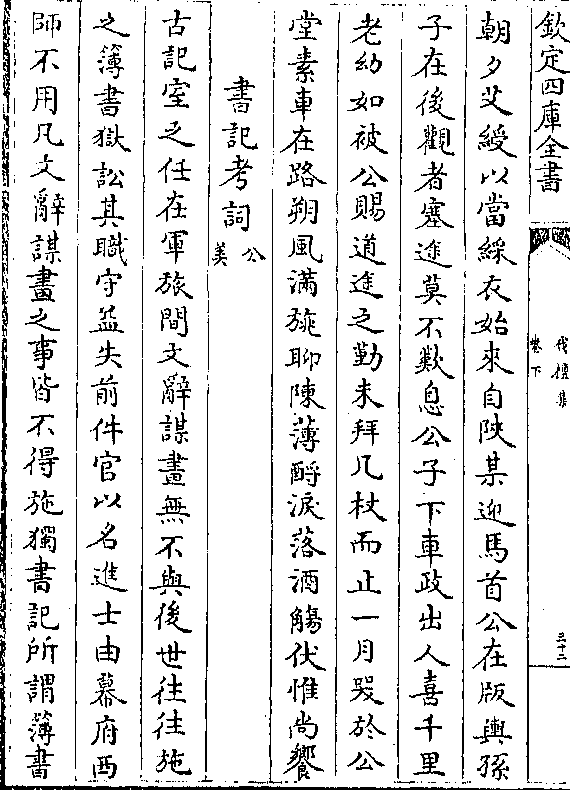 欽定四庫全書
伐檀集
卷下
三十三
朝夕艾綬以當綵衣始來自陜某迎馬首公在版輿孫
子在後觀者塞途莫不歎息公子下車政出人喜千里
老幼如被公賜道途之勤未拜几杖而止一月哭於公
堂素車在路朔風滿旐聊陳薄酹淚落酒觴伏惟尚饗
書記考詞
公美
古記室之任在軍旅間文辭謀畫無不與後世往往施
之簿書獄訟其職守益失前件官以名進士由幕府西
師不用凡文辭謀畫之事皆不得施獨書記所謂簿書